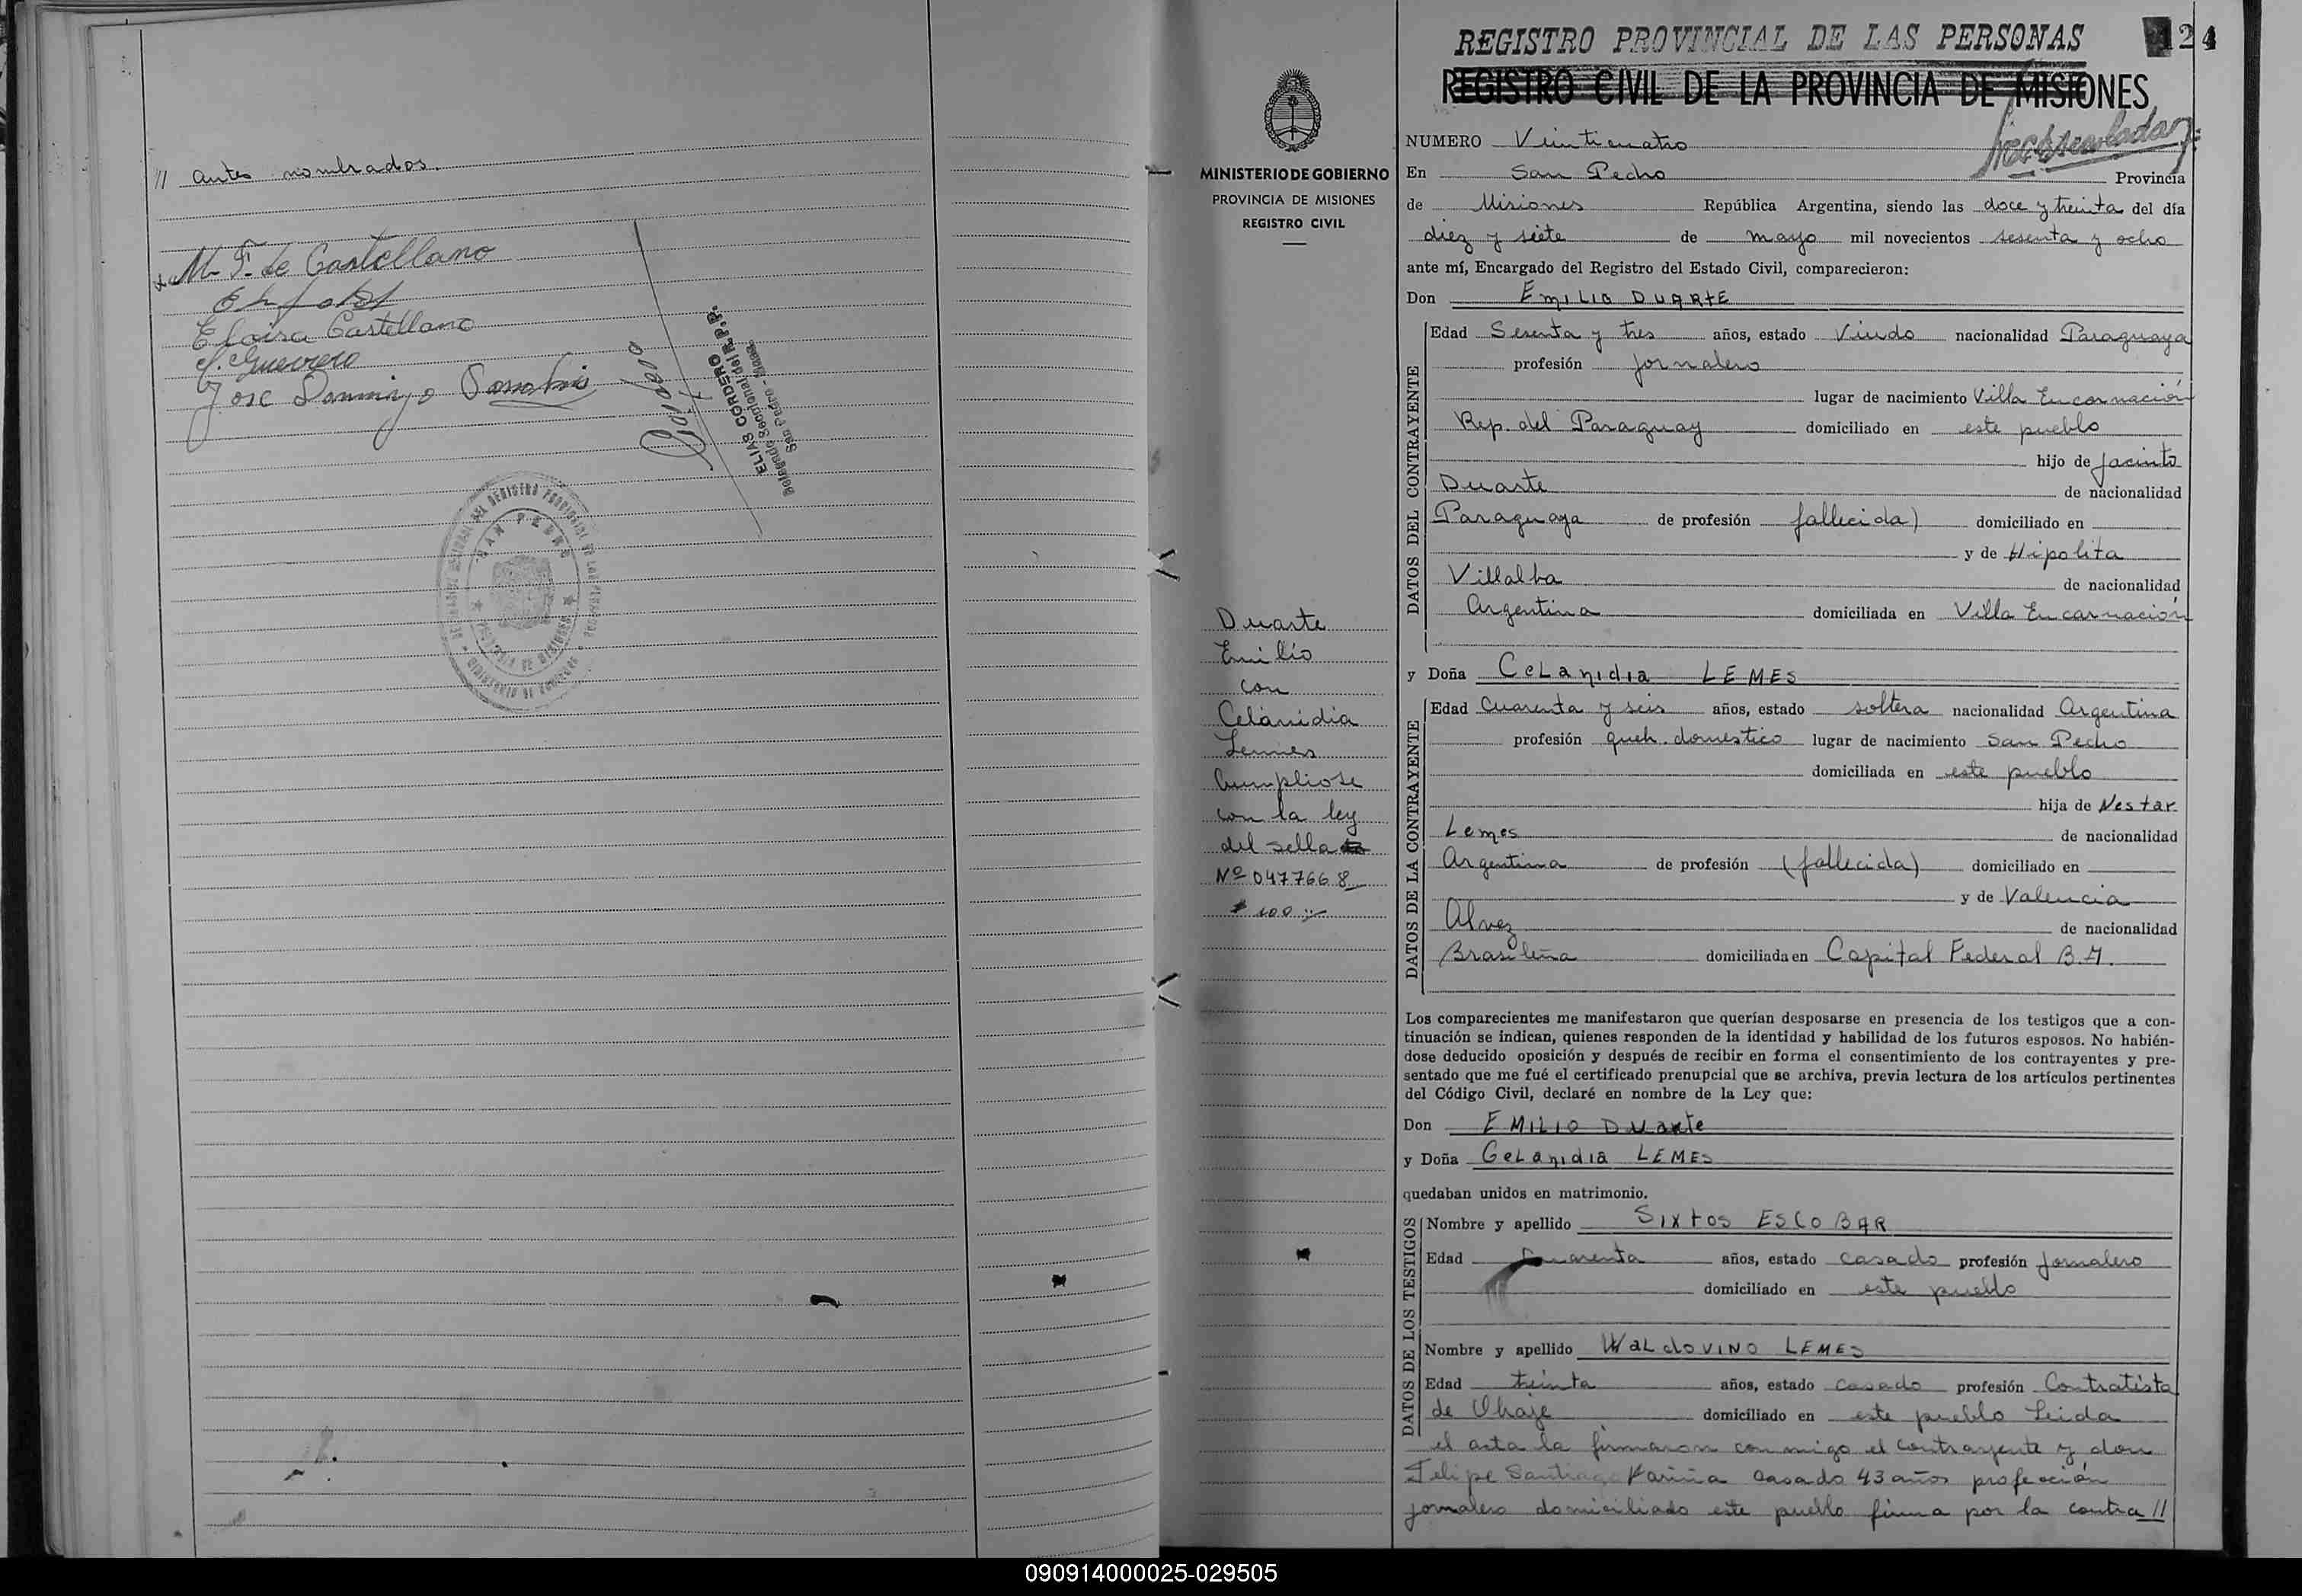 // antes nombrados.
M. F. de Castellano
Eloisa Castellano
J. Guerrero
Jose Domingo
ELIAS CORDERO
Delegado Seccional del R.P.P.
San Pedro - Mnes.
SAN PEDRO
REGISTRO PROVINCIAL DE LAS PERSONAS
124
REGISTRO CIVIL DE LA PROVINCIA DE MISIONES
MINISTERIO DE GOBIERNO
PROVINCIA DE MISIONES
REGISTRO CIVIL
Duarte
Emilio
con
Celanidia
Lemes
Cumpliose
con la ley
del sella
Nº 0477668
$ 100
NUMERO Veinticuatro
En San Pedro Provincia
de Misiones República Argentina, siendo las doce y treinta del día
diez y siete de mayo mil novecientos sesenta y ocho
ante mí, Encargado del Registro del Estado Civil, comparecieron:
Don EMILIO DUARTE
DATOS DEL CONTRAYENTE
Edad Sesenta y tres años, estado Viudo nacionalidad Paraguaya
profesión jornalero
lugar de nacimiento Villa Encarnación
Rep. del Paraguay domiciliado en este pueblo
hijo de Jacinto
Duarte de nacionalidad
Paraguaya de profesión fallecida) domiciliado en
y de Hipolita
Villalba de nacionalidad
Argentina domiciliada en Villa Encarnación
y Doña CeLanidia LEMES
DATOS DE LA CONTRAYENTE
Edad Cuarenta y seis años, estado soltera nacionalidad Argentina
profesión queh. domestico lugar de nacimiento San Pedro
domiciliada en este pueblo
hija de Nestar
Lemes de nacionalidad
Argentina de profesión (fallecida) domiciliado en
y de Valencia
Alvez de nacionalidad
Brasileña domiciliada en Capital Federal B.A.
Los comparecientes me manifestaron que querían desposarse en presencia de los testigos que a con-
tinuación se indican, quienes responden de la identidad y habilidad de los futuros esposos. No habién-
dose deducido oposición y después de recibir en forma el consentimiento de los contrayentes y pre-
sentado que me fué el certificado prenupcial que se archiva, previa lectura de los artículos pertinentes
del Código Civil, declaré en nombre de la Ley que:
Don EMILIO DUARTE
y Doña CeLanidia LEMES
quedaban unidos en matrimonio.
DATOS DE LOS TESTIGOS
Nombre y apellido SIXTOS ESCOBAR
Edad Cuarenta años, estado casado profesión jornalero
domiciliado en este pueblo
Nombre y apellido WaLdoVINO LEMES
Edad treinta años, estado casado profesión Contratista
de Obraje domiciliado en este pueblo Leida
el acta la firmaron conmigo el contrayente y don
Felipe Santiago Fariña casado 43 años profección
jornalero domiciliado este pueblo firma por la contra//
090914000025-029505